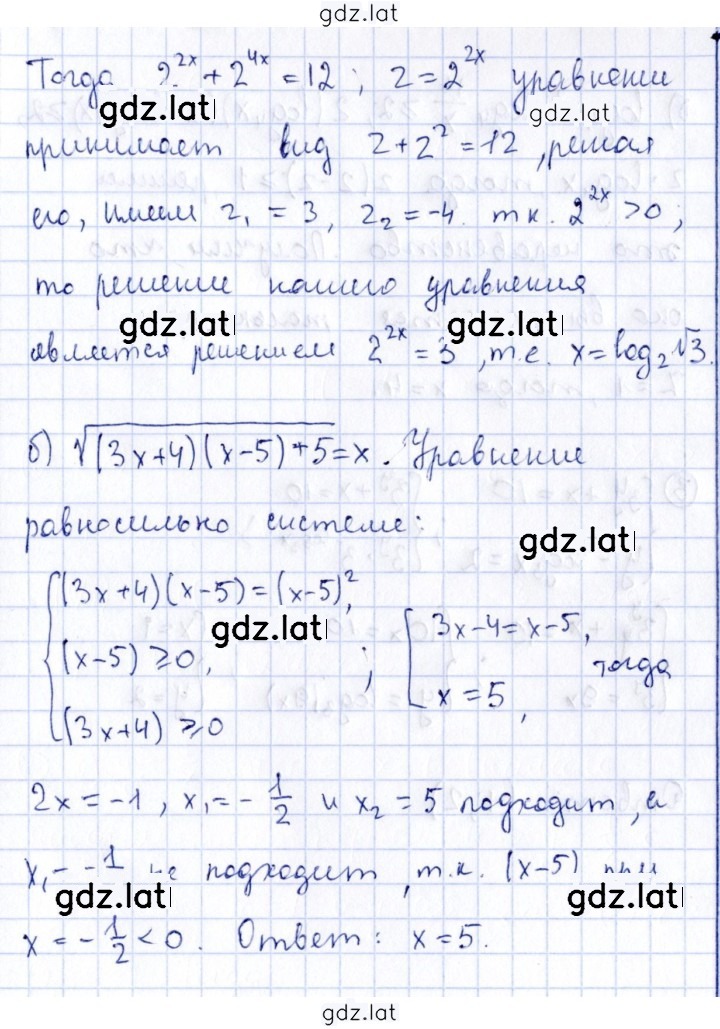 gdz.lat
Тогда 2^{2x} + 2^{4x} = 12 ; z = 2^{2x} уравнении
gdz.lat gdz.lat
принимает вид z + z^2 = 12 , решая
его, имеем z_1 = 3, z_2 = -4. т.к. 2^{2x} > 0 ;
то решение нашего уравнения
gdz.lat gdz.lat
является решением 2^{2x} = 3 , т.е. x = log_2 √3.
б) √((3x+4)(x-5)+5) = x . Уравнение
равносильно системе:
gdz.lat
(3x+4)(x-5) = (x-5)^2,
gdz.lat 3x-4 = x-5,
(x-5) ≥ 0, ; тогда
x = 5,
(3x+4) ≥ 0
2x = -1 , x_1 = - 1/2 и x_2 = 5 подходит, а
x_1 = - 1 не подходит , т.к. (x-5) при
gdz.lat gdz.lat
x = - 1/2 < 0. Ответ: x = 5.
gdz.lat